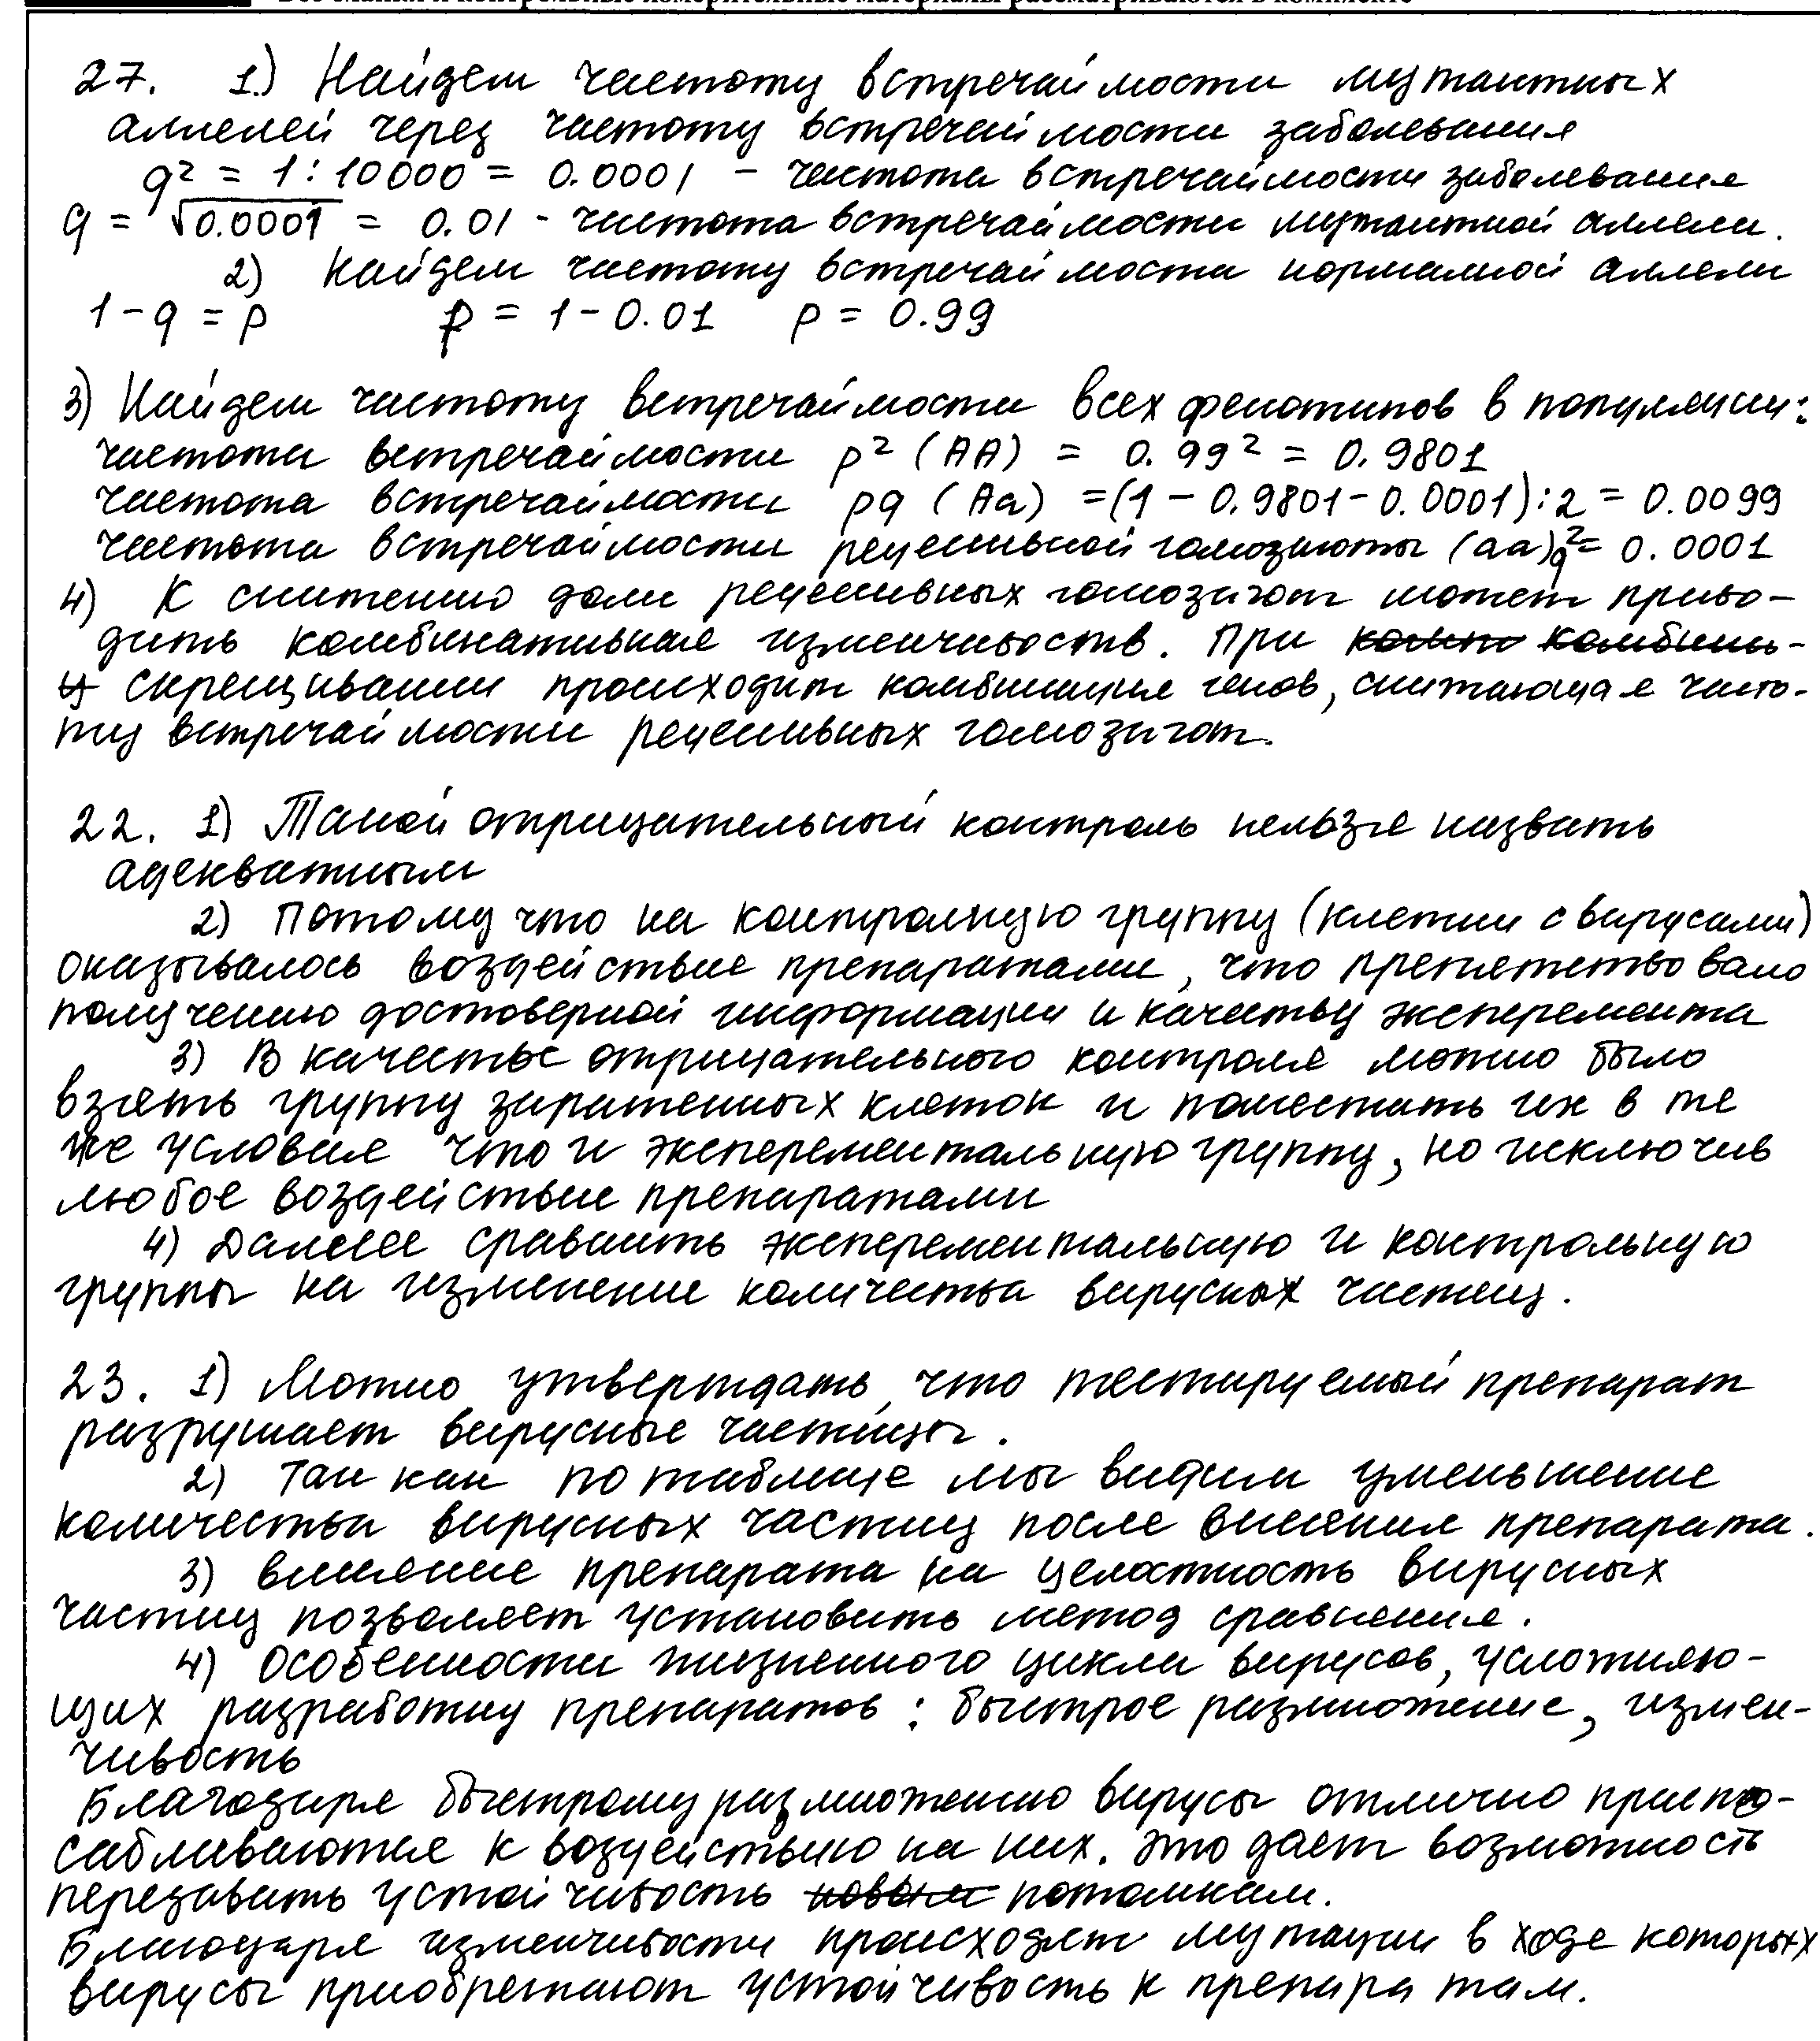 27. 1.) Найдем частоту встречаймости мутантных
аллелей через частоту встречаймости заболевания
q² = 1 : 10000 = 0.0001 - частота встречаймости заболевания
q = √0.0001 = 0.01 - частота встречаймости мутантной аллели.
2) Найдем частоту встречаймости нормалной аллели
1 - q = p p = 1 - 0.01 p = 0.99
3) Найдем частоту встречаймости всех фенотипов в популяции:
частота встречаймости p² (AA) = 0.99² = 0.9801
частота встречаймости pq (Aa) = (1 - 0.9801 - 0.0001) : 2 = 0.0099
частота встречаймости рецесивной гомозиготы (aa) q² = 0.0001
4) К снижению доли рецесивных гомозигот может приво-
дить комбинативная изменчивость. При
скрещивании происходит комбинация генов, снижающая часто-
ту встречаймости рецесивных гомозигот.
22. 1) Такой отрицательный контроль нельзя назвать
адекватным
2) Потому что на контролную группу (клетки с вирусами)
оказывалось воздействие препаратами, что препятствовало
получению достоверной информации и качеству эксперемента
3) В качестве отрицательного контроля можно было
взять группу зараженных клеток и поместить их в те
же условия что и эксперементальную группу, но исключив
любое воздействие препаратами
4) Далее сравнить эксперементальную и контрольную
группы на изменение количества вирусных частиц.
23. 1) Можно утверждать, что тестируемый препарат
разрушает вирусные частицы.
2) Так как по таблице мы видим уменьшение
количества вирусных частиц после влияния препарата.
3) влияние препарата на целостность вирусных
частиц позволяет установить метод сравнения.
4) Особенности жизненного цикла вирусов, усложняю-
щих разработку препаратов : быстрое размножение, измен-
чивость
Благодаря быстрому размножению вирусы отлично приспо-
сабливаются к воздействию на них. Это дает возможность
передавать устойчивость потомкам.
Благодаря изменчивости происходят мутации в ходе которых
вирусы приобретают устойчивость к препаратам.